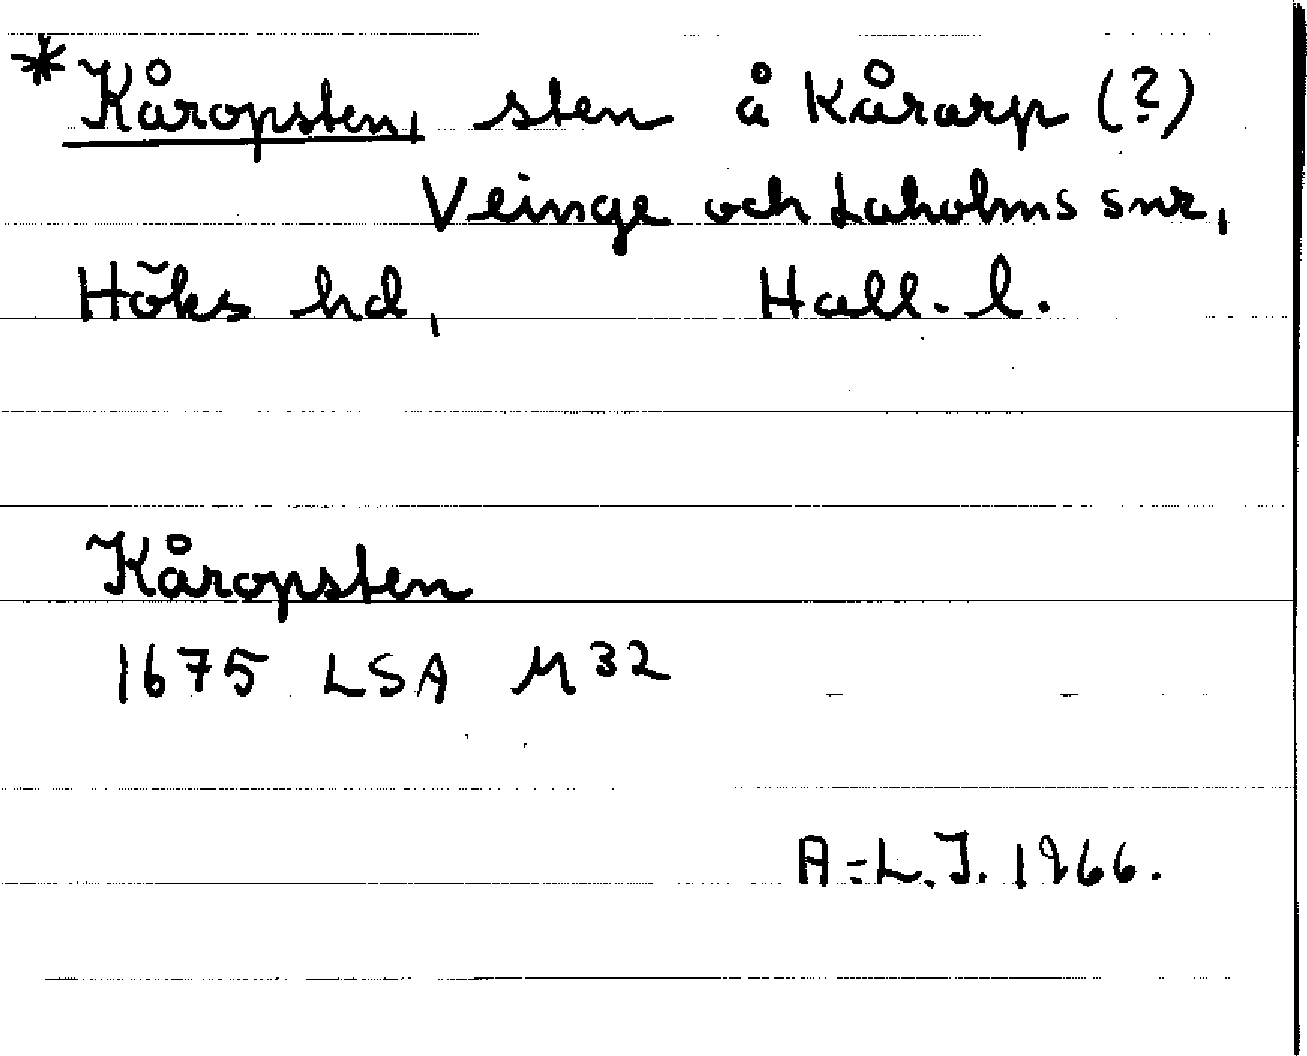 *Kåropsten, sten å Kårarp (?)
Veinge och Laholms snr,
Höks hd, Hall. l.
Kåropsten
1675 LSA M32
A-L.J. 1966.